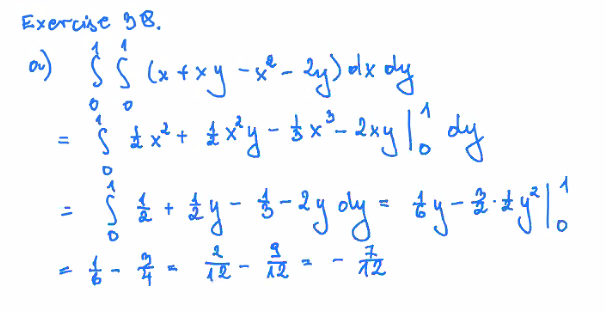 Exercise 38.
a) ∫₀¹ ∫₀¹ (x + xy - x² - 2y) dx dy
= ∫₀¹ 1/2 x² + 1/2 x²y - 1/3 x³ - 2xy |₀¹ dy
= ∫₀¹ 1/2 + 1/2 y - 1/3 - 2y dy = 1/6 y - 3/2 · 1/2 y² |₀¹
= 1/6 - 3/4 = 2/12 - 9/12 = - 7/12